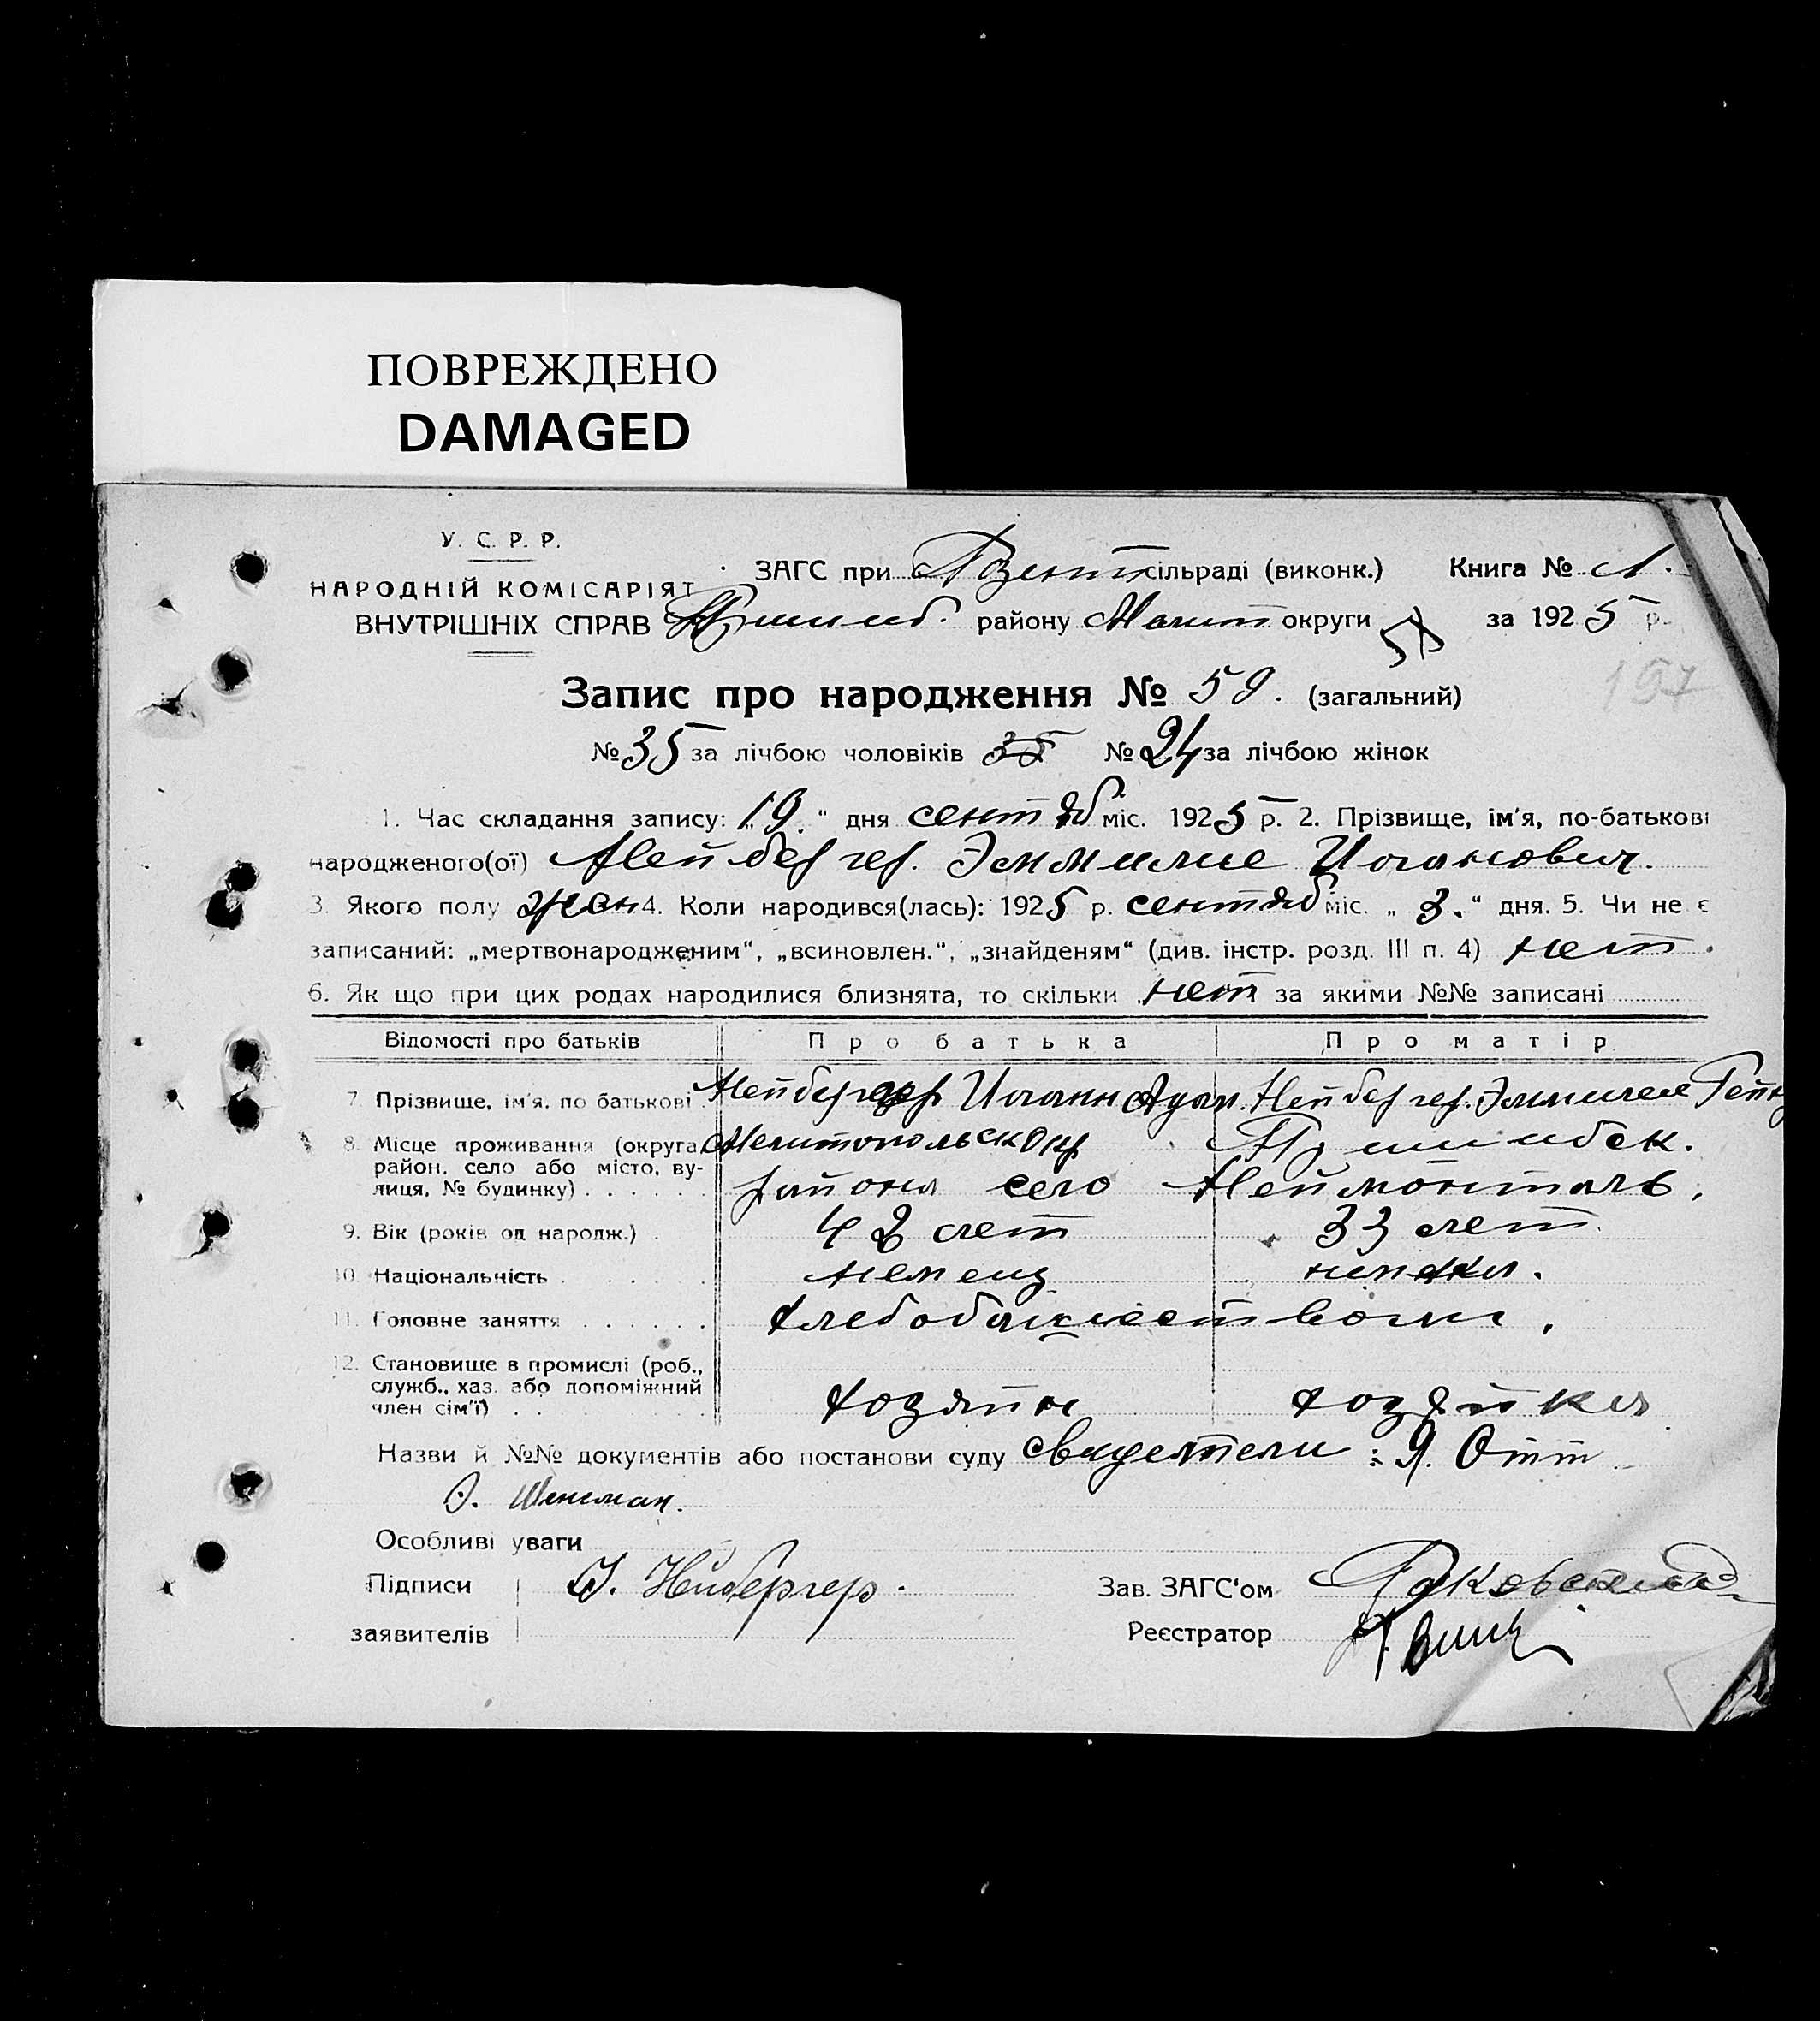 ПОВРЕЖДЕНО
DAMAGED
У. С. Р. Р.
НАРОДНІЙ КОМІСАРІЯТ
ВНУТРІШНІХ СПРАВ
ЗАГС при Розент сільраді (виконк.) Книга № 1.
Пришиб. району Мелит округи за 1925 р.
197
Запис про народження № 59. (загальний)
№ 35 за лічбою чоловіків 35 № 24 за лічбою жінок
1. Час складання запису: „19.“ дня сентяб міс. 1925 р. 2. Прізвище, ім'я, по-батькові
народженого(ої) Нейбергер. Эммилие Иоганович.
3. Якого полу жен 4. Коли народився(лась): 1925 р. сентяб міс. „3.“ дня. 5. Чи не є
записаний: „мертвонародженим“, „всиновлен.“, „знайденям“ (див. інстр. розд. III п. 4) нет.
6. Як що при цих родах народилися близнята, то скільки нет за якими №№ записані
Відомості про батьків Про батька Про матір
7. Прізвище, ім'я, по батькові Нейбергер Иоганн Адам. Нейбергер. Эммилее Гейн
8. Місце проживання (округа, Мелитопольск окр Пришибск.
район, село або місто, ву-
лиця, № будинку) . . . . . . района село Неймонталь.
9. Вік (років од народж.) . 42 лет 33 лет.
10. Національність . . . . . немец немка.
11. Головне заняття . . . . . . хлебобашеством.
12. Становище в промислі (роб.,
служб., хаз. або допоміжний
член сім'ї) . . . хозяин хозяйка
Назви й №№ документів або постанови суду свидетели: Я. Отт
Особливі уваги
Підписи И. Нейбергер. Зав. ЗАГС'ом
заявителів Реєстратор